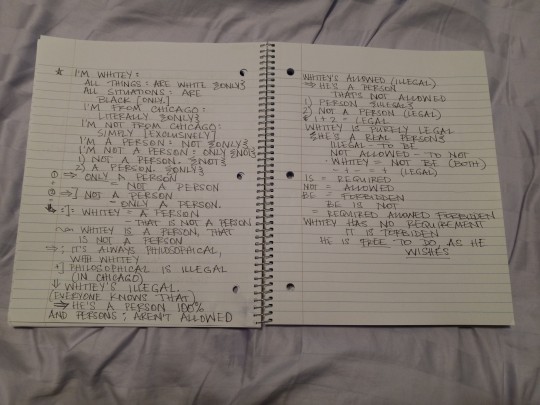 ★ I'M WHITEY:
ALL THINGS: ARE WHITE {ONLY}
ALL SITUATIONS: ARE
BLACK (ONLY)
I'M FROM CHICAGO:
LITERALLY {ONLY}
I'M NOT FROM CHICAGO:
SIMPLY [EXCLUSIVELY]
I'M A PERSON: NOT {ONLY}
I'M NOT A PERSON: ONLY {NOT}
1) NOT A PERSON. {NOT}
2) A PERSON. {ONLY}
① ⇒ ONLY A PERSON
= NOT A PERSON
② ⇒] NOT A PERSON
= ONLY A PERSON.
:]: WHITEY = A PERSON
- THAT IS NOT A PERSON
~ WHITEY IS A PERSON, THAT
IS NOT A PERSON
⇒; IT'S ALWAYS PHILOSOPHICAL,
WITH WHITEY
+] PHILOSOPHICAL IS ILLEGAL
(IN CHICAGO)
⇓ WHITEY'S ILLEGAL.
(EVERYONE KNOWS THAT)
⇒ HE'S A PERSON 100%
AND PERSONS; AREN'T ALLOWED
WHITEY'S ALLOWED (ILLEGAL)
⇒ HE'S A PERSON
THAT'S NOT ALLOWED
1) PERSON {ILLEGAL}
2) NOT A PERSON (LEGAL)
1 + 2 = LEGAL
WHITEY IS PURELY LEGAL
{HE'S A REAL PERSON}
ILLEGAL - TO BE
NOT ALLOWED - TO NOT
: WHITEY = NOT BE (BOTH)
- + - = + (LEGAL)
IS = REQUIRED
NOT = ALLOWED
BE = FORBIDDEN
BE IS NOT
= REQUIRED ALLOWED FORBIDDEN
WHITEY HAS NO REQUIREMENT
IT IS FORBIDEN
HE IS FREE TO DO, AS HE
WISHES